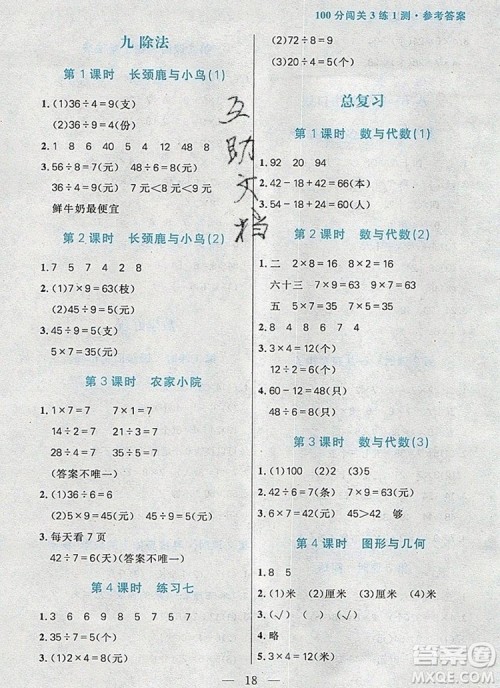 100分闯关3练1测·参考答案
九 除法
第1课时 长颈鹿与小鸟(1)
1.(1)36÷4=9(支)
(2)36÷9=4(份)
2.1 8 9 5 4 12 40 48
3.56÷8=7(元) 48÷6=8(元)
63÷9=7(元) 7元<8元 7元<8元
鲜牛奶最便宜
第2课时 长颈鹿与小鸟(2)
1.7 7 7 6 2 8
2.(1)7×9=63(枝)
(2)45÷9=5(元)
3.45÷9=5(元)
5×7=35(元)
第3课时 农家小院
1.1×7=7 7×1=7
14÷2=7 21÷3=7
28÷4=7 35÷5=7
(答案不唯一)
2.(1)36÷6=6(元)
(2)5×9=45(元) 45÷5=9(元)
3.每天看7页
42÷7=6(天)(答案不唯一)
第4课时 练习七
1.3 6 8 9 8 7 5 7
2.(1)45÷9=5(本)
3.(1)5×8=40(元)
(2)72÷9=8(元)
(3)20÷5=4(元)
总复习
第1课时 数与代数(1)
1.92 20 94
2.42-18+42=66(本)
3.54-18+24=60(人)
第2课时 数与代数(2)
1.二 2×8=16 8×2=16
六十三 7×9=63 9×7=63
五 5×7=35 7×5=35
2.
3.3×4=12(个)
12÷2=6(个)
4.60-12=48(只)
48÷6=8(只)
第3课时 数与代数(3)
1.(1)100 (2)2 (3)5
2.42÷6=7(条) 7×6=42(元)
3.5×9=45(元) 45>42 够
第4课时 图形与几何
1.8 5
2.(1)米 (2)厘米 (3)厘米
3.(√) (√) ( ) (√)
4.略
5.3×4=12(个)
互助文档
18
答案圈
MXQE.COM